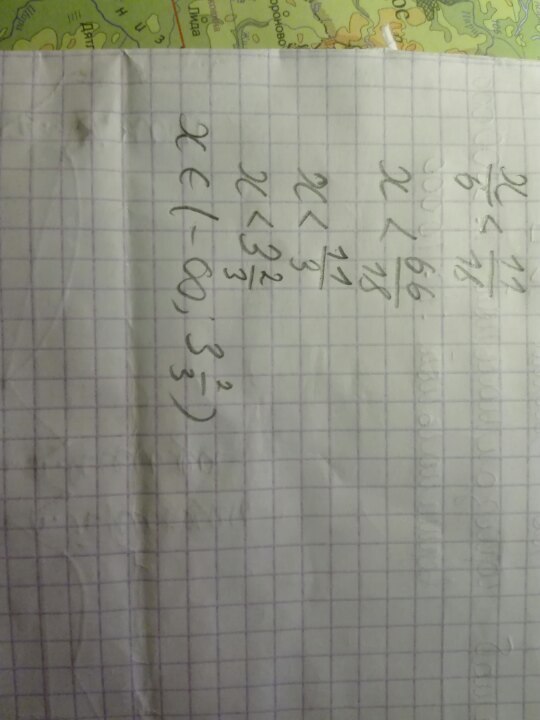 Лида
x/6 < 11/18
x < 66/18
x < 11/3
x < 3 2/3
x ∈ (-∞; 3 2/3)